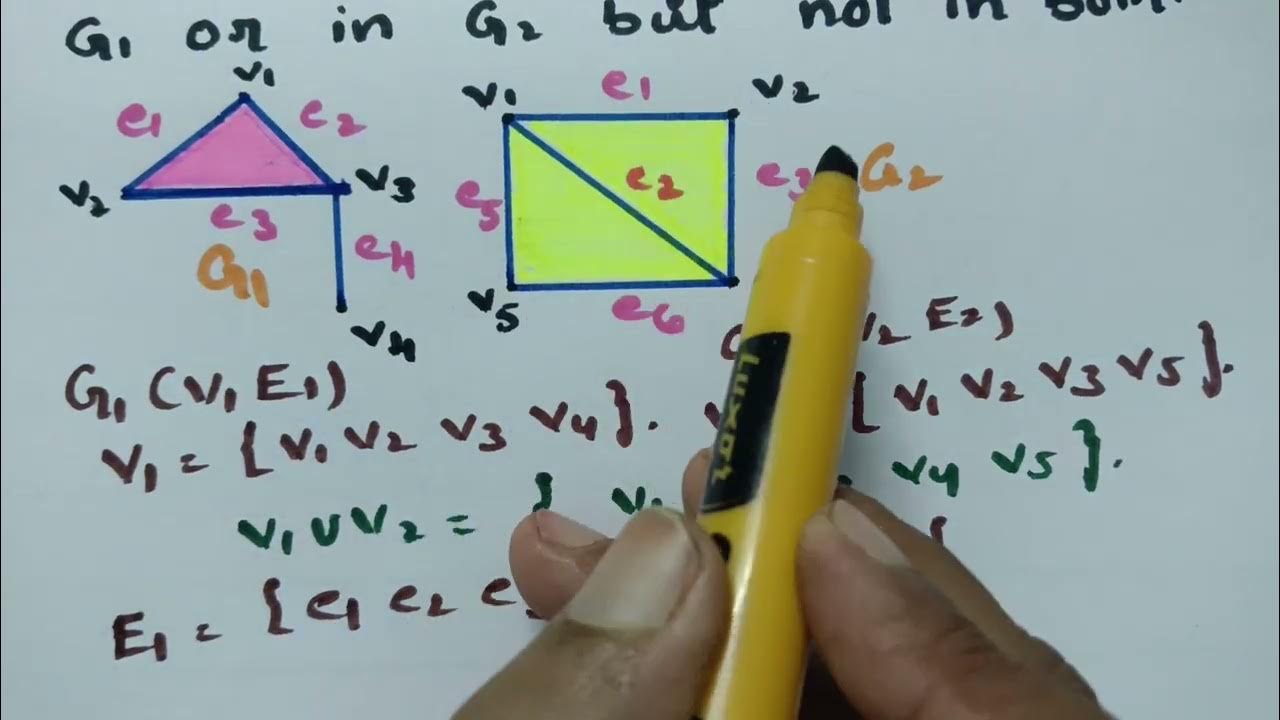 G1 or in G2 but not in both.
v1
e1 e2
v2 v3
e3
G1 e4
v4
v1 e1 v2
e5 e2 e3 G2
v5 e6
G1 (V1 E1)
V2 E2)
V1 = {v1 v2 v3 v4}.
{v1 v2 v3 v5}.
V1 ∪ V2 = { v1 v4 v5}.
E1 = {e1 e2
Luxor